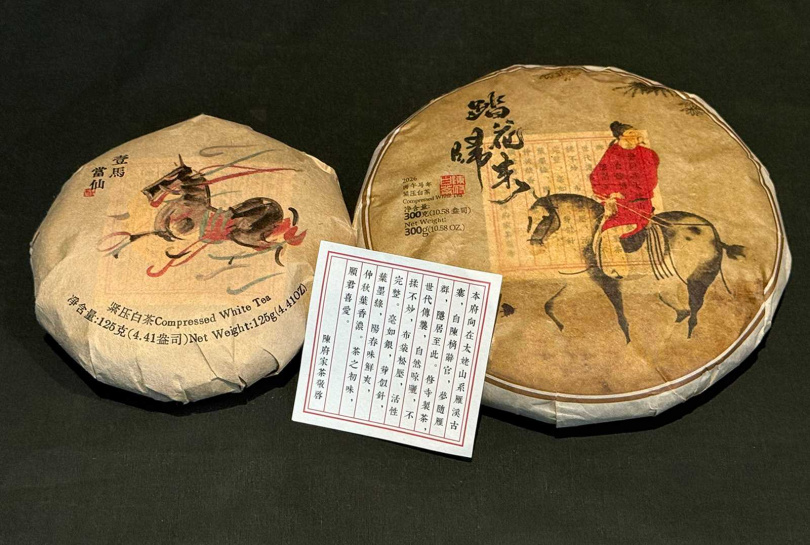 壹馬
當仙
紧压白茶Compressed White Tea
净含量:125克(4.41盎司)Net Weight:125g(4.41OZ)
踏花
歸来
2026
丙午马年
紧压白茶
Compressed White
净含量:
300克(10.58 盎司)
Net Weight:
300g(10.58 OZ.)
本府向在太姥山系雁溪古
寨。自陳橋辭官，夢隨雁
群，隱居至此。修寺製茶，
世代傳襲，自然晾曬，不
揉不炒，布袋松壓，活性
完整。毫如銀，芽似針，
葉墨綠。陽春味鮮爽，
仲秋葉香濃。茶之初味，
願君喜愛。
陳府家茶敬啓